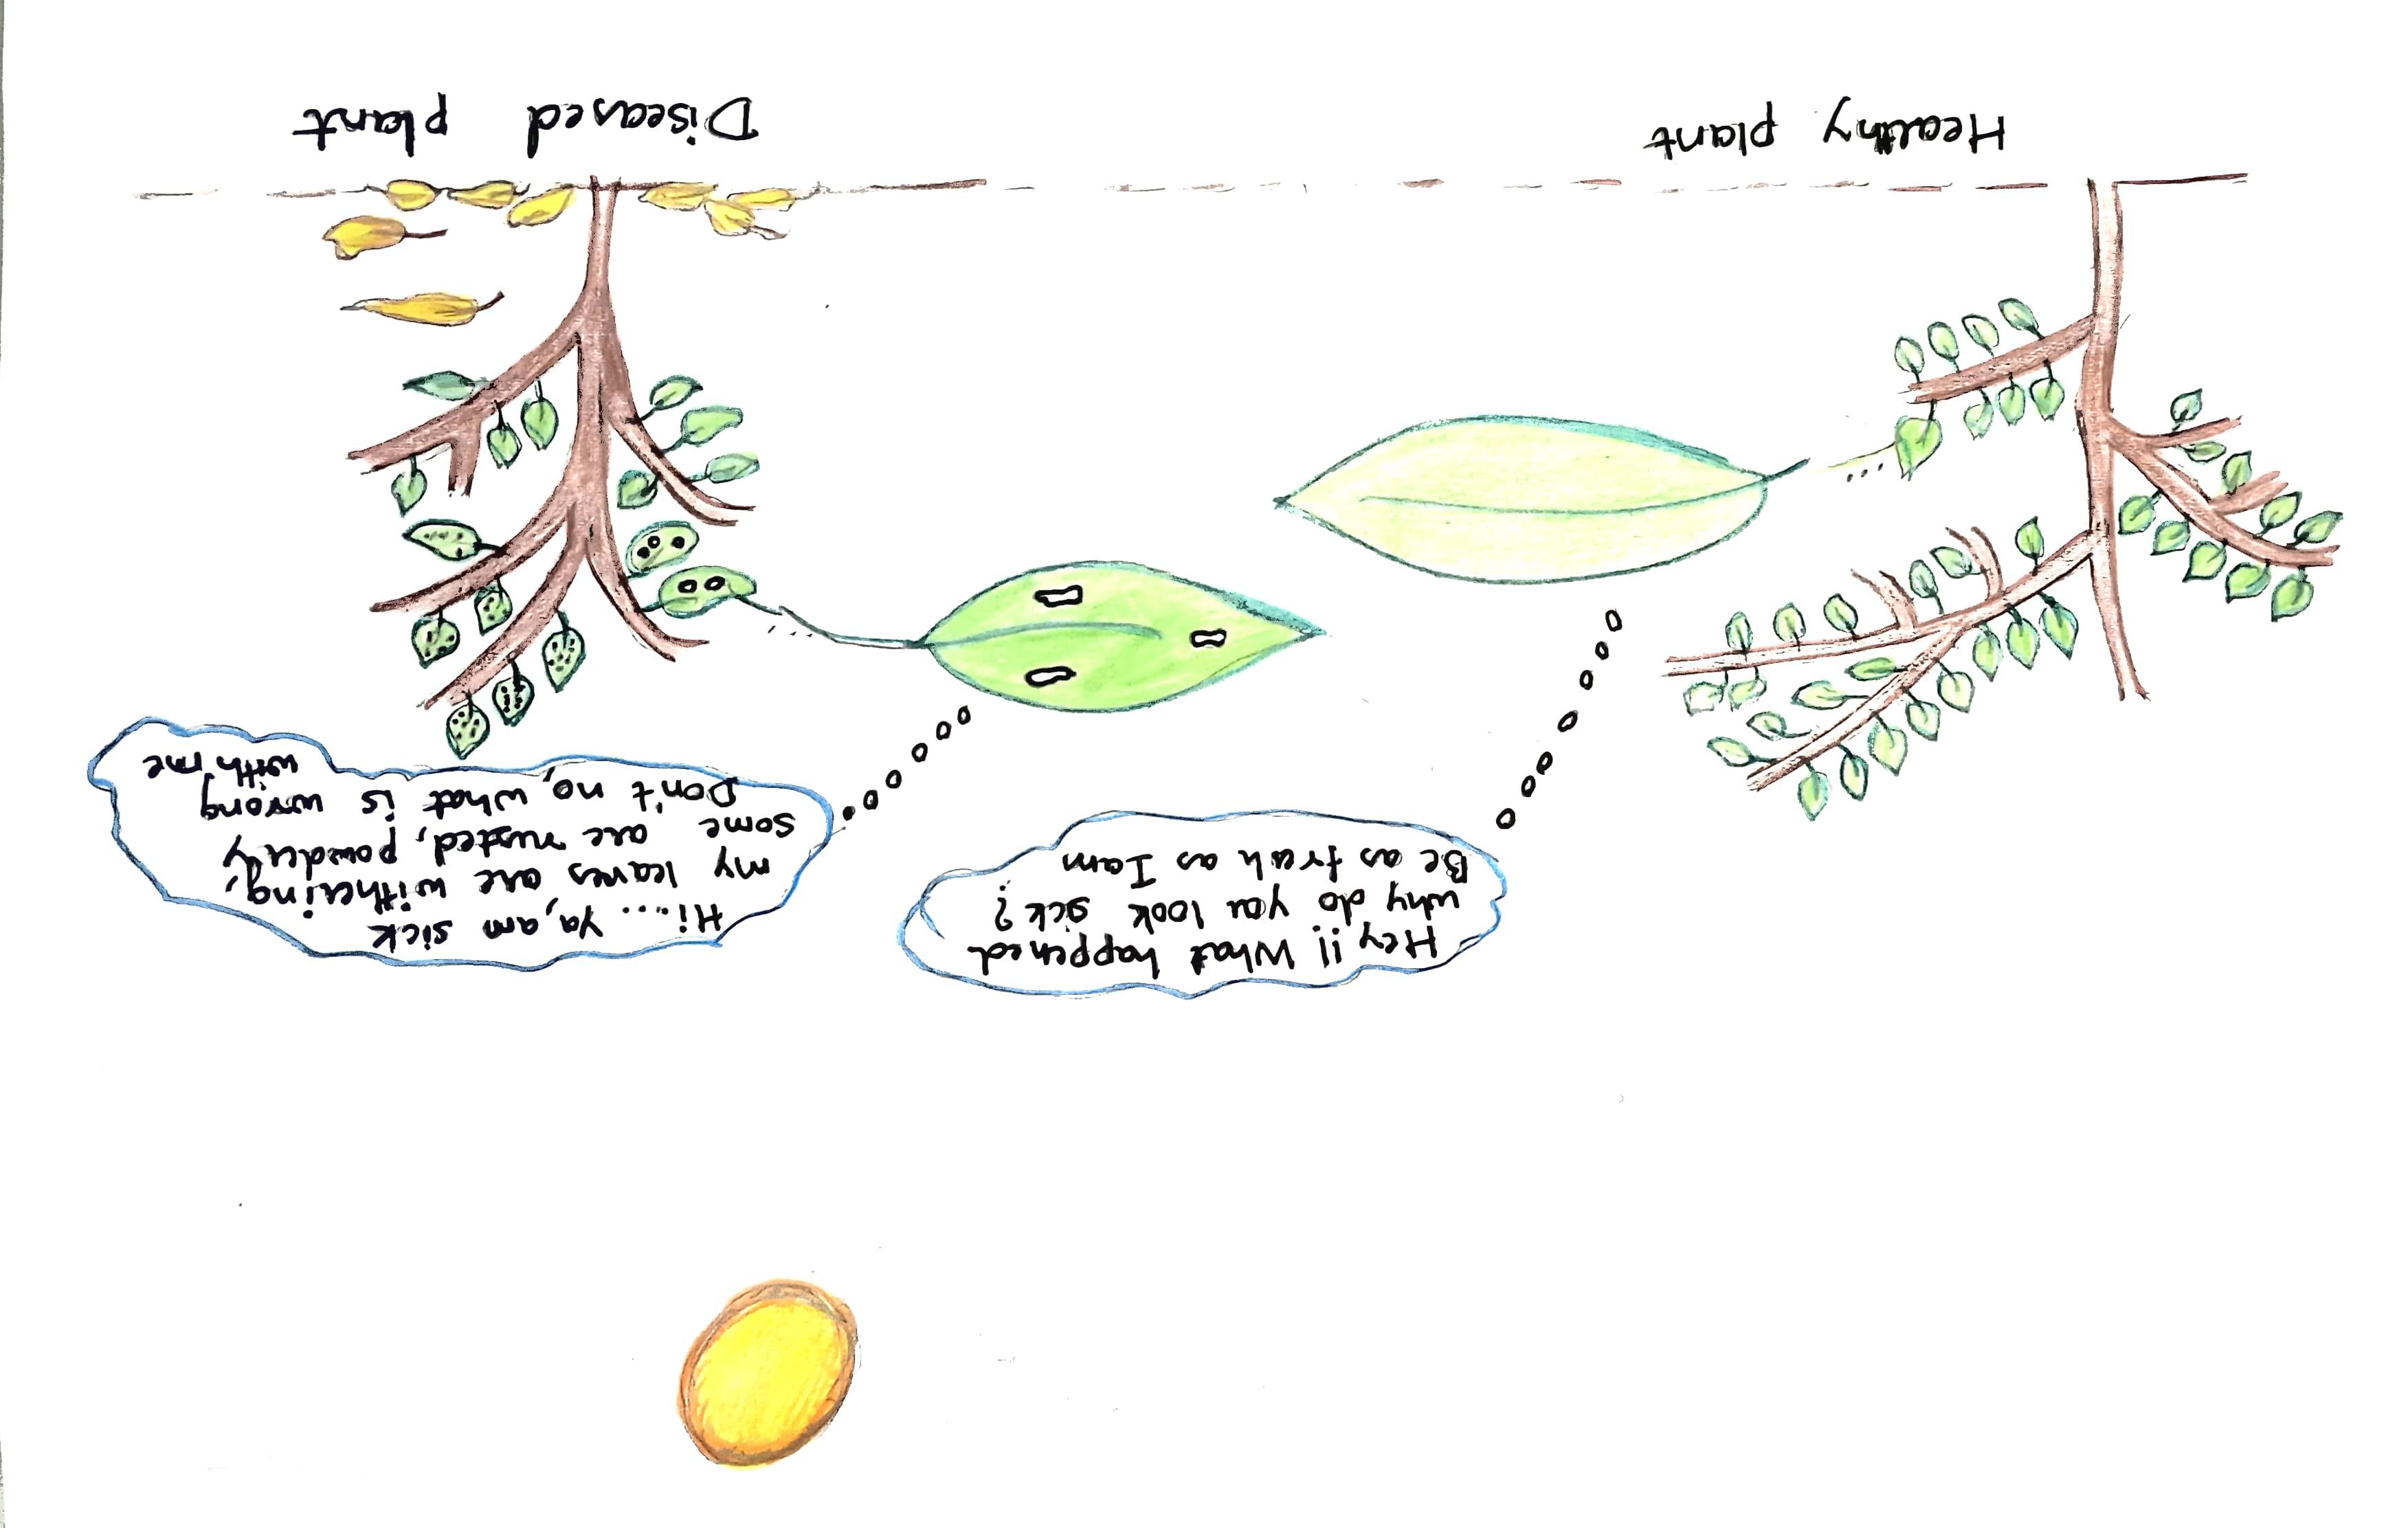 Hey!! What happened
why do you look sick?
Be as fresh as I am
Hi.... Ya, am sick
my leaves are withering,
some are rusted, powdery
Don't no, what is wrong
with me
Healthy plant
Diseased plant